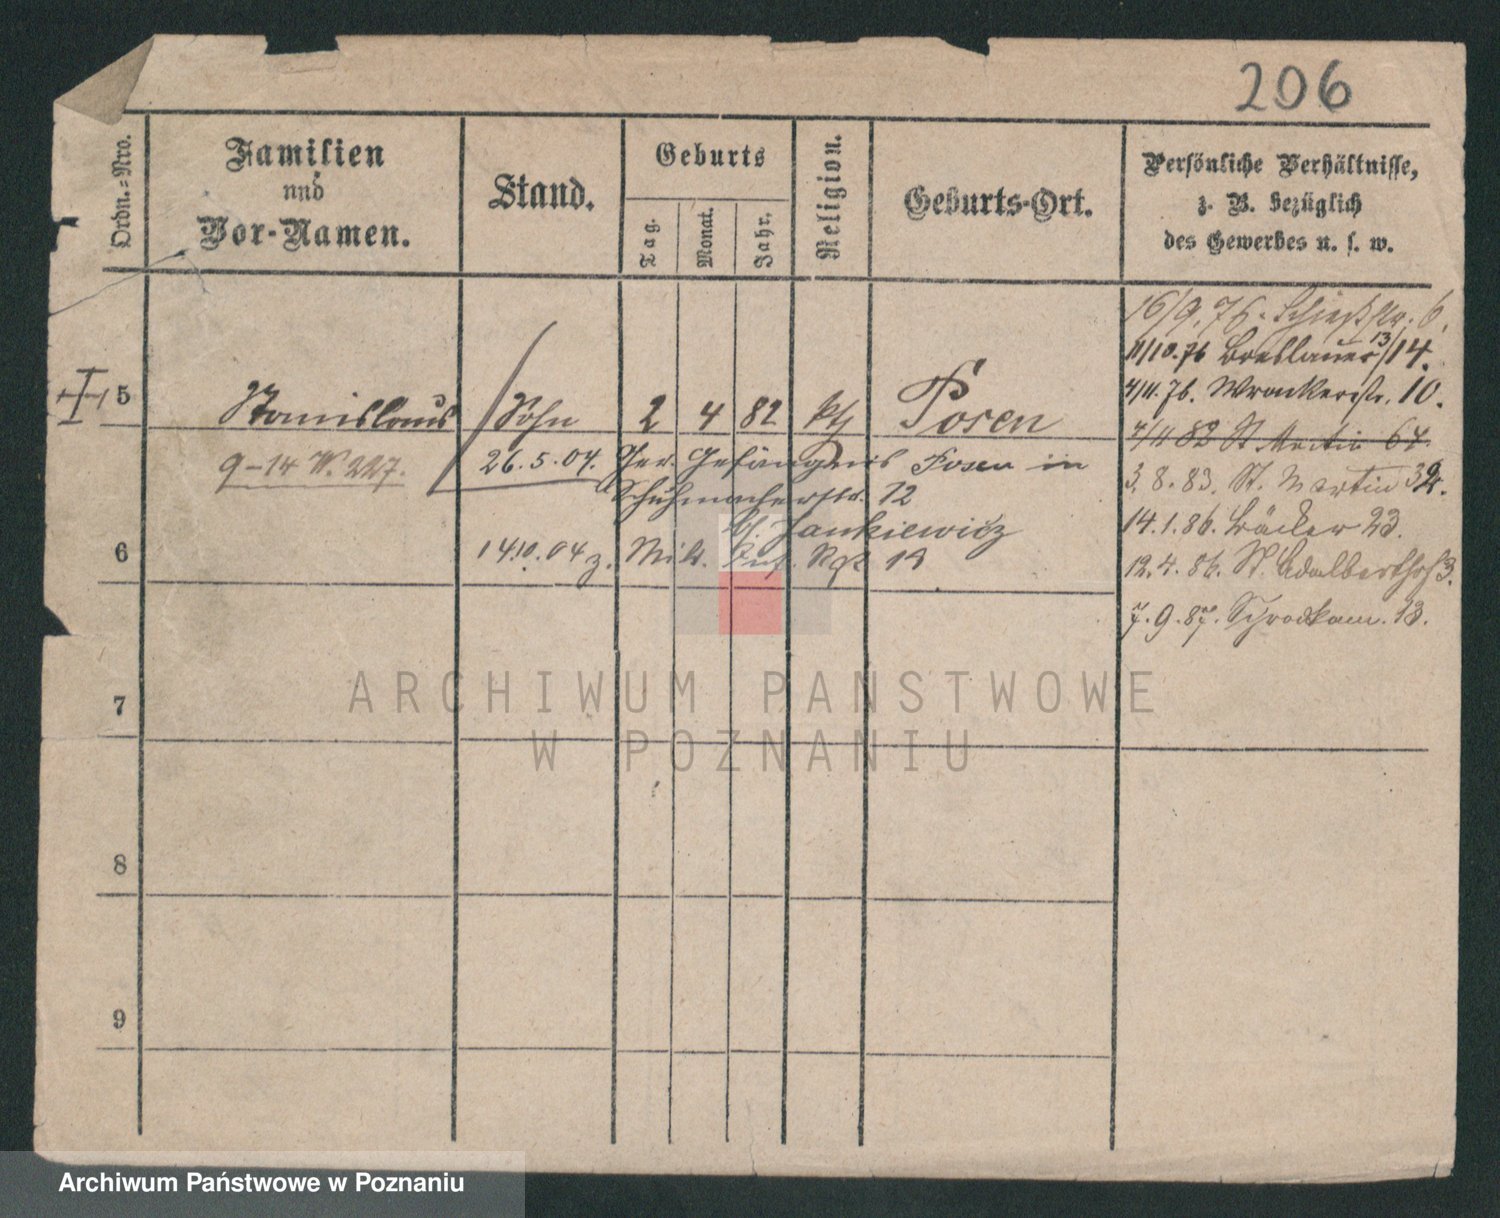 206
Ordn.-Nro.
Familien
und
Vor-Namen.
Stand.
Geburts
Tag.
Monat.
Jahr.
Religion.
Geburts-Ort.
Persönliche Verhältnisse,
z. B. bezüglich
des Gewerbes u. s. w.
16/9.76. Schießstr. 6.
11/10.76 Breslauer 13/14.
4/11.76. Wronkerstr. 10.
5 Stanislaus Sohn 2 4 82 kth Posen
4/11 82 St Martin 64.
9-14 W. 227. 26.5.04. Ger. Gefängnis Posen in
3.8.83. St. Martin
Schuhmacherstr. 12
14.1.86. Bäcker 23.
b/ Jankiewicz
6 14.10.04 z. Milt. Inf. Rgt
12.4.86. St. Adalberthof 3.
7.9.87. Schrodkam. 13.
7
8
9
ARCHIWUM PAŃSTWOWE
W POZNANIU
Archiwum Państwowe w Poznaniu